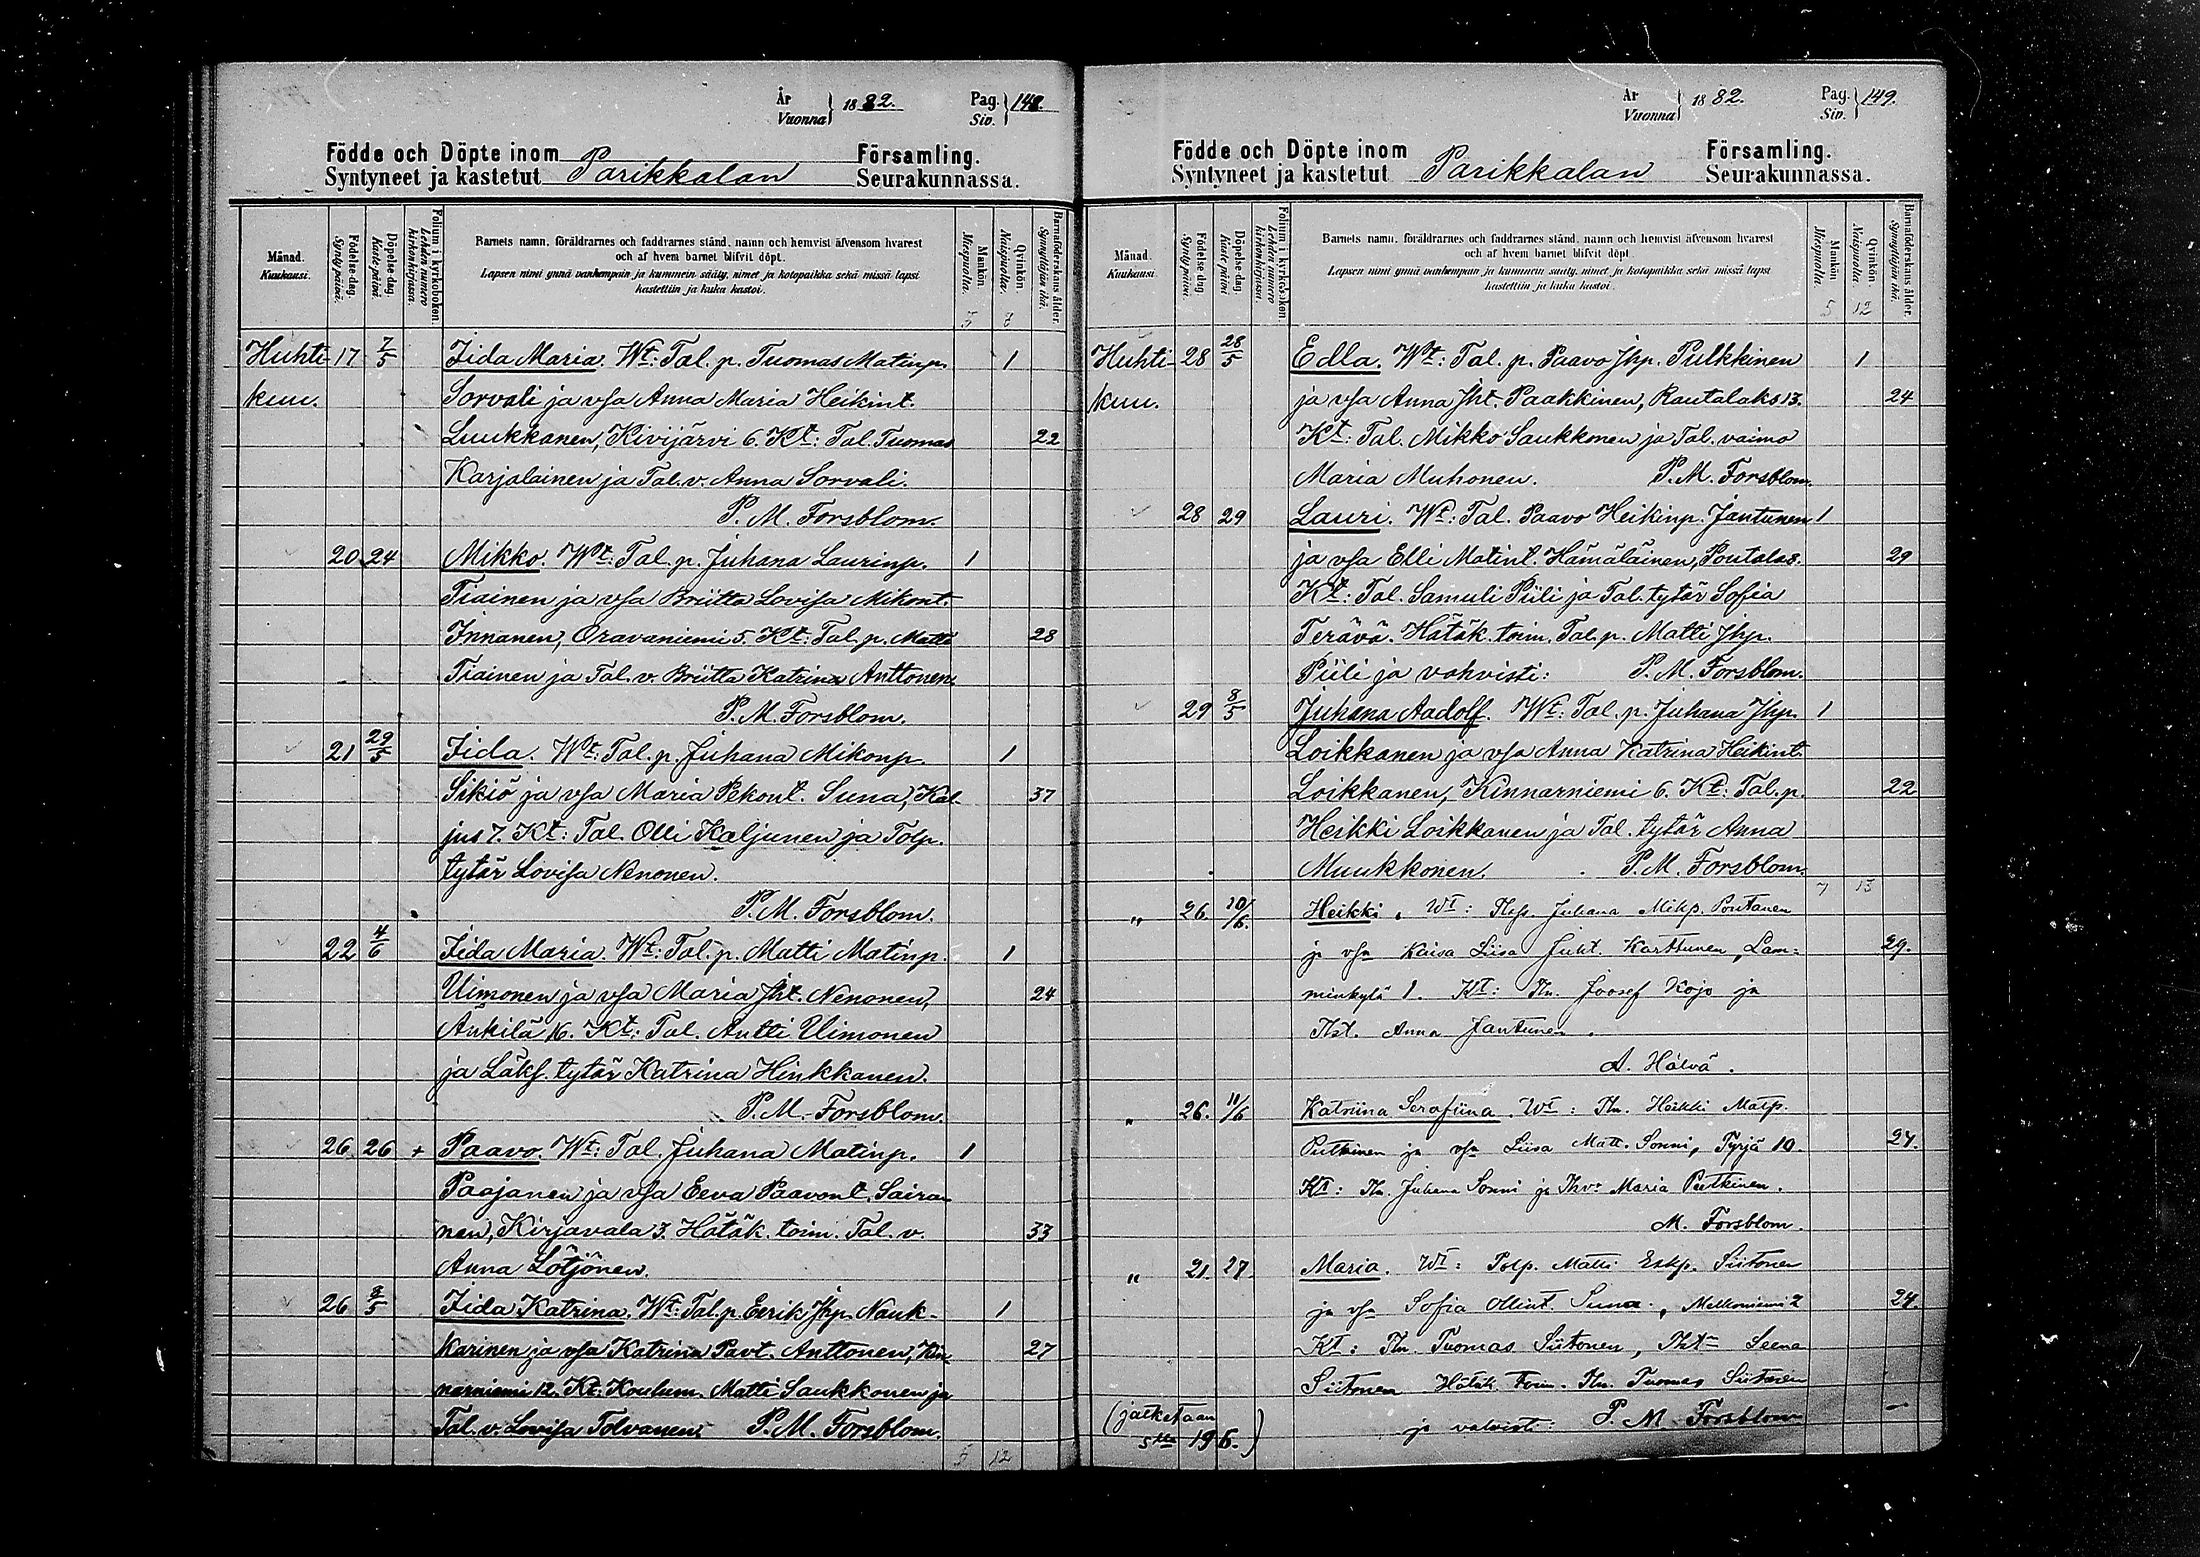 År
Vuonna } 1882. Pag. Siv. } 148.
Födde och Döpte inom Parikkalan Församling.
Syntyneet ja kastetut Seurakunnassa.
Månad. Kuukausi. Födelse-dag. Synty-päivä. Döpelse-dag. Kaste-päivä. Folium i kyrkoboken. Lehden numero kirkonkirjassa. Barnets namn, föräldrarnes och faddrarnes stånd, namn och hemvist äfvensom hvarest och af hvem barnet blifvit döpt. Lapsen nimi ynnä vanhempain ja kummein sääty, nimet ja kotopaikka sekä missä lapsi kastettiin ja kuka kastoi. Mankön. Miespuolta. Qvinkön. Naispuolta. Barnaföderskans ålder. Synnyttäjän ikä.
Huhti- 17 7/5 Iida Maria. Wt: Tal. p. Tuomas Matinp. 1
kuu. Sorvali ja vsa Anna Maria Heikint.
Luukkanen, Kivijärvi 6. Kt: Tal. Tuomas 22
Karjalainen ja Tal. v. Anna Sorvali.
P. M. Forsblom.
20 24 Mikko. Wt: Tal. p. Juhana Laurinp. 1
Tiainen ja vsa Briitta Lovisa Mikont.
Innanen, Oravaniemi 5. Kt: Tal. p. Matti 28
Tiainen ja Tal. v. Briitta Katrina Anttonen.
P. M. Forsblom.
21 29/5 Iida. Wt: Tal. p. Juhana Mikonp. 1
Sikiö ja vsa Maria Pekont. Suna, Kal- 37
jus 7. Kt: Tal. Olli Kaljunen ja Tolp.
tytär Lovisa Nenonen.
P. M. Forsblom.
22 4/6 Iida Maria. Wt: Tal. p. Matti Matinp. 1
Uimonen ja vsa Maria Jht. Nenonen, 24
Änkilä 16. Kt: Tal. Antti Uimonen
ja Läks. tytär Katrina Hinkkanen.
P. M. Forsblom.
26 26 + Paavo. Wt: Tal. Juhana Matinp. 1
Paajanen ja vsa Eeva Paavont. Saira-
nen, Kirjavala 3. Hätäk. toim. Tal. v. 33
Anna Lötjönen.
26 /5 Iida Katrina. Wt: Tal. p. Eerik Jhp. Nauk- 1
karinen ja vsa Katrina Pavt. Anttonen, Kin- 27
narniemi 12. Kt: Koulum. Matti Saukkonen ja
Tal. v. Lovisa Tolvanen. P. M. Forsblom.
5 12
År
Vuonna } 1882. Pag. Siv. } 149.
Födde och Döpte inom Parikkalan Församling.
Syntyneet ja kastetut Seurakunnassa.
Månad. Kuukausi. Födelse-dag. Synty-päivä. Döpelse-dag. Kaste-päivä. Folium i kyrkoboken. Lehden numero kirkonkirjassa. Barnets namn, föräldrarnes och faddrarnes stånd, namn och hemvist äfvensom hvarest och af hvem barnet blifvit döpt. Lapsen nimi ynnä vanhempain ja kummein sääty, nimet ja kotopaikka sekä missä lapsi kastettiin ja kuka kastoi. Mankön. Miespuolta. Qvinkön. Naispuolta. Barnaföderskans ålder. Synnyttäjän ikä.
5 12
Huhti- 28 28/5 Edla. Wt: Tal. p. Paavo Jhp. Pulkkinen 1
kuu. ja vsa Anna Jht. Paakkinen, Rautalaks 13. 24
Kt: Tal. Mikko Saukkonen ja Tal. vaimo
Maria Muhonen. P. M. Forsblom.
28 29 Lauri. Wt: Tal. Paavo Heikinp. Jantunen 1
ja vsa Elli Matint. Hämäläinen, Poutala 8. 29
Kt: Tal. Samuli Piili ja Tal. tytär Sofia
Terävä. Hätäk. toim. Tal. p. Matti Jhp.
Piili ja vahvisti: P. M. Forsblom.
29 8/5 Juhana Aadolf. Wt: Tal. p. Juhana Jhp. 1
Loikkanen ja vsa Anna Katrina Heikint.
Loikkanen, Kinnarniemi 6. Kt: Tal. p. 22
Heikki Loikkanen ja Tal. tytär Anna
Muukkonen. P. M. Forsblom.
7 13
" 26. 10/6. Heikki. Wt: Juhana Mikp. Poutanen
ja vsa Kaisa Liisa Juht. Karttunen, Lam- 29.
minkylä 1. Kt: Tln. Joosef Kojo ja
Tlst. Anna Jantunen.
A. Hälvä.
" 26. 11/6 Katriina Serafiina. Wt: Tln. Heikki Matp.
Putkinen ja vsa Liisa Matt. Sonni, Tyrjä 10. 27.
Kt: Tln. Juhana Sonni ja Tlv: Maria Putkinen.
M. Forsblom.
" 21. 27. Maria. Wt: Tolp. Matti Eskp. Siitonen
ja vsa Sofia Ollint. Suna, Melkoniemi 2 24.
Kt: Tln. Tuomas Siitonen, Leena
Siitonen Hätäk. toim. Tln. Tuomas Siitonen
(jatketaan ja vahvisti: P. M. Forsblom
slla 196.)